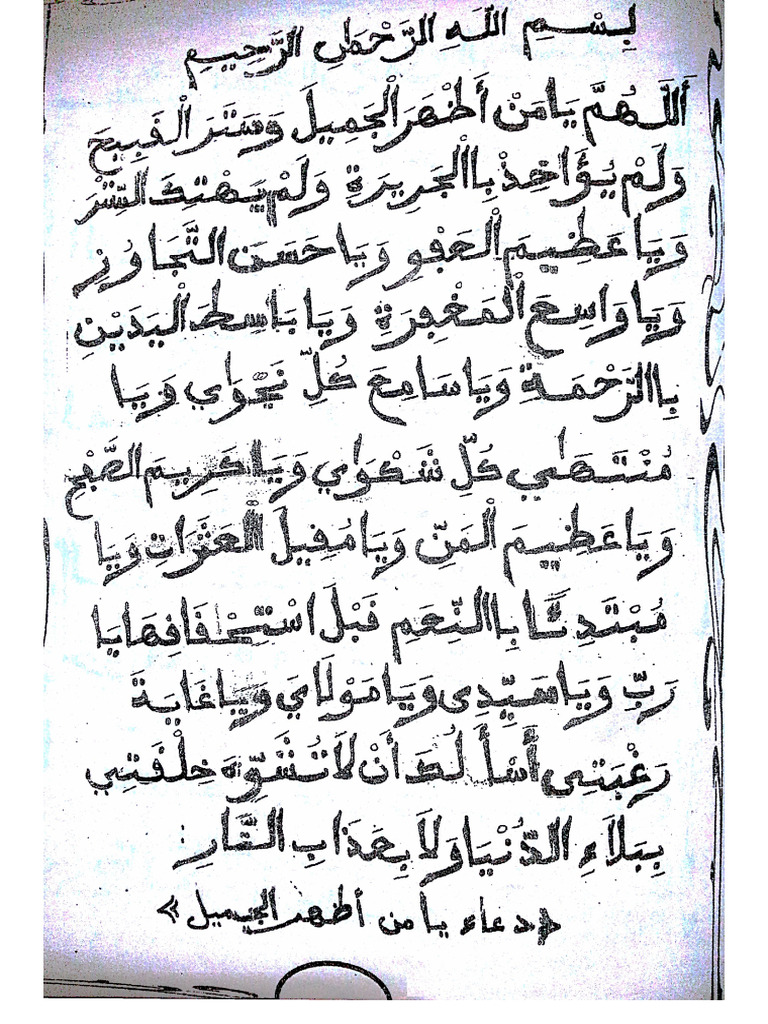 بِسْمِ اللَّهِ الرَّحْمَٰنِ الرَّحِيمِ
أَللَّهُمَّ يَا مَنْ أَظْهَرَ الْجَمِيلَ وَسَتَرَ الْقَبِيحَ
وَلَمْ يُؤَاخِذْ بِالْجَرِيرَةِ وَلَمْ يَهْتِكِ السِّتْرَ
وَيَا عَظِيمَ الْعَفْوِ وَيَا حَسَنَ التَّجَاوُزِ
وَيَا وَاسِعَ الْمَغْفِرَةِ وَيَا بَاسِطَ الْيَدَيْنِ
بِالرَّحْمَةِ وَيَا سَامِعَ كُلِّ نَجْوَايَ وَيَا
مُنْتَهَىٰ كُلِّ شَكْوَايَ وَيَا كَرِيمَ الصَّفْحِ
وَيَا عَظِيمَ الْمَنِّ وَيَا مُقِيلَ الْعَثَرَاتِ وَيَا
مُبْتَدِئًا بِالنِّعَمِ قَبْلَ اسْتِحْقَاقِهَا يَا
رَبِّ وَيَا سَيِّدِي وَيَا مَوْلَايَ وَيَا غَايَةَ
رَغْبَتِي أَسْأَلُكَ أَنْ لَا تُشَوِّهَ خِلْقَتِي
بِبَلَاءِ الدُّنْيَا وَلَا بِعَذَابِ النَّارِ
«دعاء يا من أظهر الجميل»